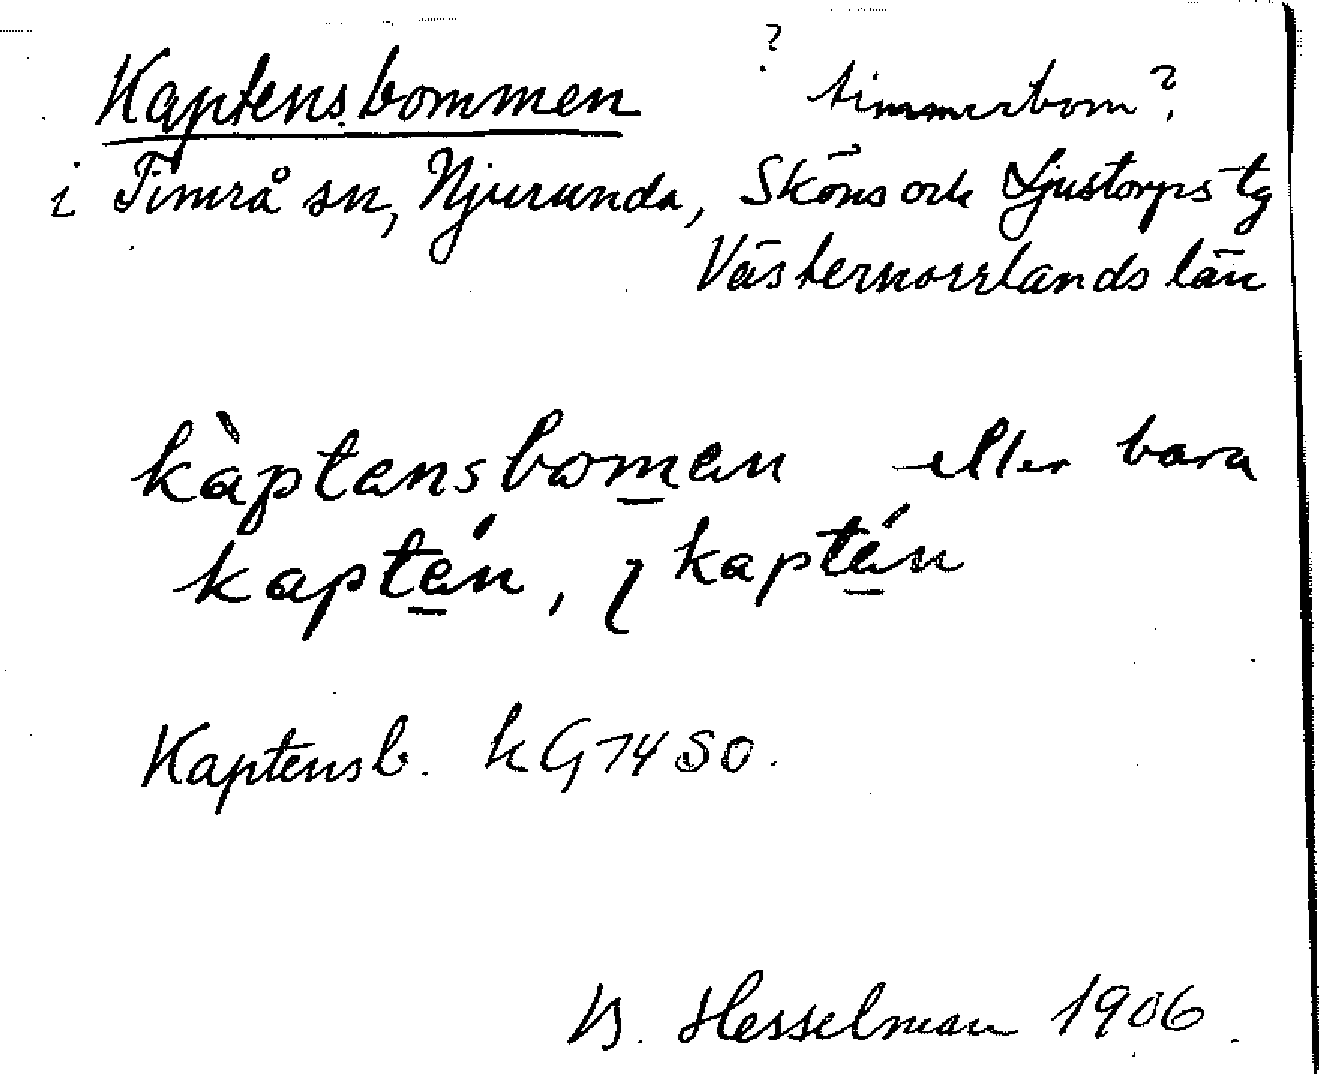 Kaptensbommen ? timmerbom?
i Timrå sn, Njurunda, Sköns och Ljustorps tg
Västernorrlands län
kàptansboman eller bara
kaptán, kaptán
Kaptensb. kG 74 SO.
B. Hesselman 1906.